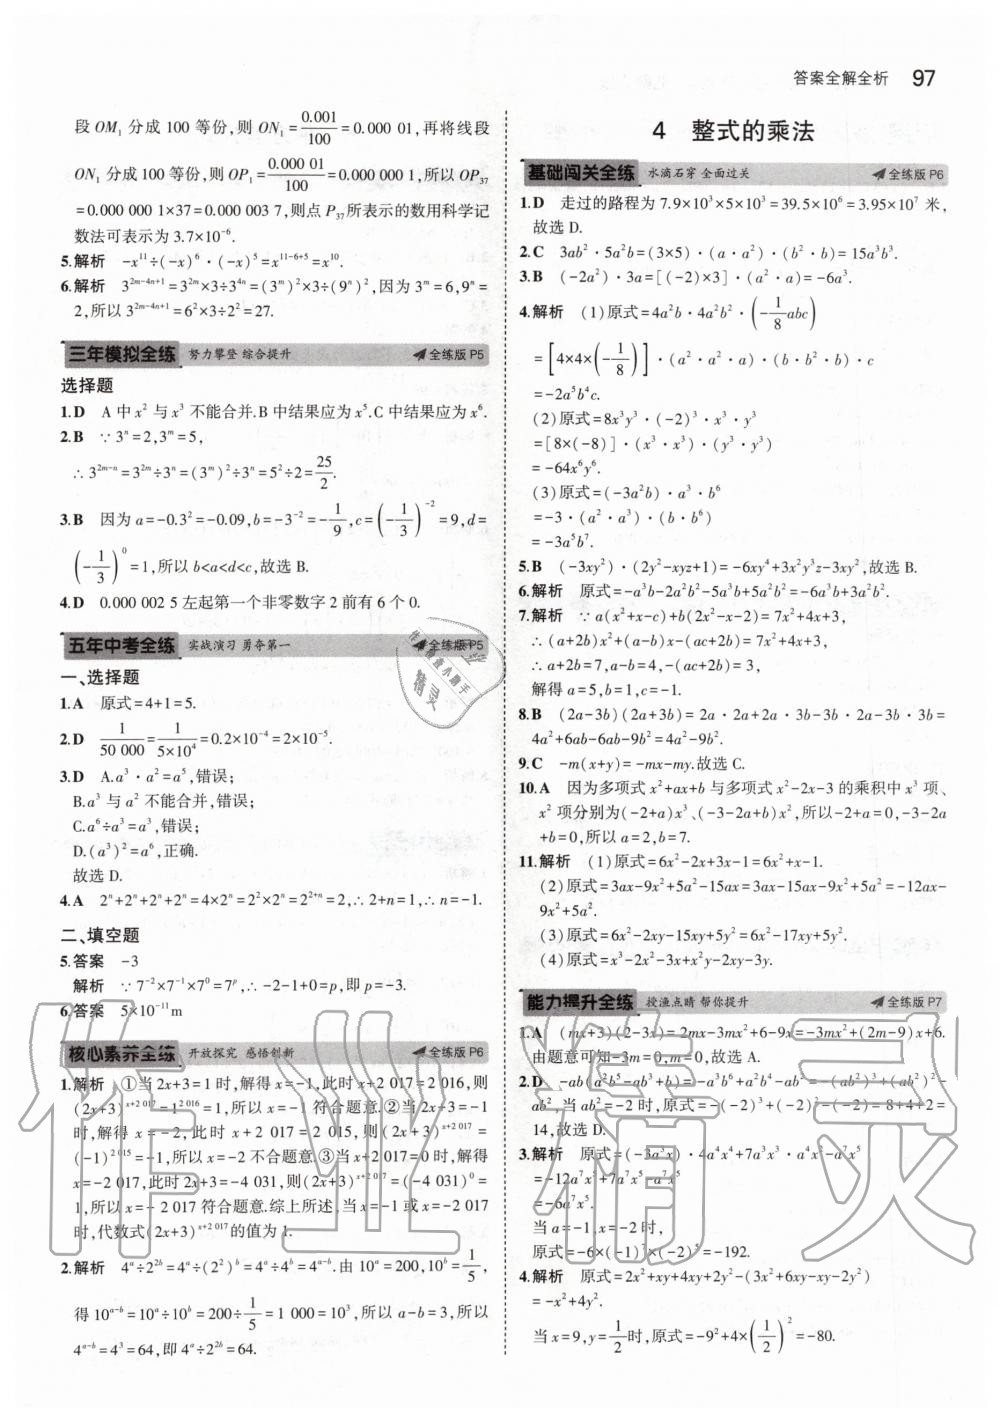 答案全解全析 97
段 OM₁ 分成 100 等份,则 ON₁ = 0.001/100 = 0.000 01,再将线段
ON₁ 分成 100 等份,则 OP₁ = 0.000 01/100 = 0.000 000 1,所以 OP₃₇
=0.000 000 1×37=0.000 003 7,则点 P₃₇所表示的数用科学记
数法可表示为 3.7×10⁻⁶.
5.解析 -x¹¹÷(-x)⁶·(-x)⁵=x¹¹⁻⁶⁺⁵=x¹⁰.
6.解析 3²ᵐ⁻⁴ⁿ⁺¹=3²ᵐ×3÷3⁴ⁿ=(3ᵐ)²×3÷(9ⁿ)²,因为 3ᵐ=6,9ⁿ=
2,所以 3²ᵐ⁻⁴ⁿ⁺¹=6²×3÷2²=27.
三年模拟全练 努力攀登 综合提升 全练版 P5
选择题
1.D A 中 x² 与 x³ 不能合并.B 中结果应为 x⁵.C 中结果应为 x⁶.
2.B ∵3ⁿ=2,3ᵐ=5,
∴3²ᵐ⁻ⁿ=3²ᵐ÷3ⁿ=(3ᵐ)²÷3ⁿ=5²÷2=25/2.
3.B 因为 a=-0.3²=-0.09,b=-3⁻²=-1/9,c=(-1/3)⁻²=9,d=
(-1/3)⁰=1,所以 b<a<d<c,故选 B.
4.D 0.000 002 5 左起第一个非零数字 2 前有 6 个 0.
五年中考全练 实战演习 勇夺第一 全练版 P5
一、选择题
1.A 原式=4+1=5.
2.D 1/50 000=1/(5×10⁴)=0.2×10⁻⁴=2×10⁻⁵.
3.D A.a³·a²=a⁵,错误;
B.a³ 与 a² 不能合并,错误;
C.a⁶÷a³=a³,错误;
D.(a³)²=a⁶,正确.
故选 D.
4.A 2ⁿ+2ⁿ+2ⁿ+2ⁿ=4×2ⁿ=2²×2ⁿ=2²⁺ⁿ=2,∴2+n=1,∴n=-1.
二、填空题
5.答案 -3
解析 ∵7⁻²×7⁻¹×7⁰=7ᵖ,∴-2-1+0=p,即 p=-3.
6.答案 5×10⁻¹¹m
核心素养全练 开放探究 感悟创新 全练版 P6
1.解析 ①当 2x+3=1 时,解得 x=-1,此时 x+2 017=2 016,则
(2x+3)ˣ⁺²⁰¹⁷=1²⁰¹⁶=1,所以 x=-1 符合题意.②当 2x+3=-1
时,解得 x=-2,此时 x+2 017=2 015,则(2x+3)ˣ⁺²⁰¹⁷=
(-1)²⁰¹⁵=-1,所以 x=-2 不合题意.③当 x+2 017=0 时,解得
x=-2 017,此时 2x+3=-4 031,则(2x+3)ˣ⁺²⁰¹⁷=(-4 031)⁰=
1,所以 x=-2 017 符合题意.综上所述,当 x=-1 或 x=-2 017
时,代数式(2x+3)ˣ⁺²⁰¹⁷的值为 1.
2.解析 4ᵃ÷2²ᵇ=4ᵃ÷(2²)ᵇ=4ᵃ÷4ᵇ=4ᵃ⁻ᵇ.由 10ᵃ=200,10ᵇ=1/5,
得 10ᵃ⁻ᵇ=10ᵃ÷10ᵇ=200÷1/5=1 000=10³,所以 a-b=3,所以
4ᵃ⁻ᵇ=4³=64,即 4ᵃ÷2²ᵇ=64.
4 整式的乘法
基础闯关全练 水滴石穿 全面过关 全练版 P6
1.D 走过的路程为 7.9×10³×5×10³=39.5×10⁶=3.95×10⁷ 米,
故选 D.
2.C 3ab²·5a²b=(3×5)·(a·a²)·(b²·b)=15a³b³.
3.B (-2a²)·3a=[(-2)×3]·(a²·a)=-6a³.
4.解析 (1)原式=4a²b·4a²b²·(-1/8abc)
=[4×4×(-1/8)]·(a²·a²·a)·(b·b²·b)·c
=-2a⁵b⁴c.
(2)原式=8x³y³·(-2)³·x³·y³
=[8×(-8)]·(x³·x³)·(y³·y³)
=-64x⁶y⁶.
(3)原式=(-3a²b)·a³·b⁶
=-3·(a²·a³)·(b·b⁶)
=-3a⁵b⁷.
5.B (-3xy²)·(2y²-xyz+1)=-6xy⁴+3x²y³z-3xy²,故选 B.
6.解析 原式=-a³b-2a²b²-5a³b+5a²b²=-6a³b+3a²b².
7.解析 ∵a(x²+x-c)+b(2x²-x-2)=7x²+4x+3,
∴(a+2b)x²+(a-b)x-(ac+2b)=7x²+4x+3,
∴a+2b=7,a-b=4,-(ac+2b)=3,
解得 a=5,b=1,c=-1.
8.B (2a-3b)(2a+3b)=2a·2a+2a·3b-3b·2a-3b·3b=
4a²+6ab-6ab-9b²=4a²-9b².
9.C -m(x+y)=-mx-my.故选 C.
10.A 因为多项式 x²+ax+b 与多项式 x²-2x-3 的乘积中 x³ 项、
x² 项分别为(-2+a)x³、(-3-2a+b)x²,所以-2+a=0,-3-2a
+b=0,所以 a=2,b=7.
11.解析 (1)原式=6x²-2x+3x-1=6x²+x-1.
(2)原式=3ax-9x²+5a²-15ax=3ax-15ax-9x²+5a²=-12ax-
9x²+5a².
(3)原式=6x²-2xy-15xy+5y²=6x²-17xy+5y².
(4)原式=x³-2x-3x²+x²y-2xy-3y.
能力提升全练 授渔点睛 帮你提升 全练版 P7
1.A (mx+3)(2-3x)=2mx-3mx²+6-9x=-3mx²+(2m-9)x+6.
由题意可知-3m=0,m=0,故选 A.
2.D -ab(a²b⁵-ab³+b)=-a³b⁶+a²b⁴-ab²=-(ab²)³+(ab²)²-
ab²,当 ab²=-2 时,原式=-(-2)³+(-2)²-(-2)=8+4+2=
14,故选 D.
3.解析 原式=(-3a³x)·4a⁴x⁴+7a³x³·a⁴x²-a⁷x⁵
=-12a⁷x⁵+7a⁷x⁵-a⁷x⁵
=-6a⁷x⁵.
当 a=-1,x=-2 时,
原式=-6×(-1)⁷×(-2)⁵=-192.
4.解析 原式=2x²+xy+4xy+2y²-(3x²+6xy-xy-2y²)
=-x²+4y².
当 x=9,y=1/2时,原式=-9²+4×(1/2)²=-80.
作业精灵